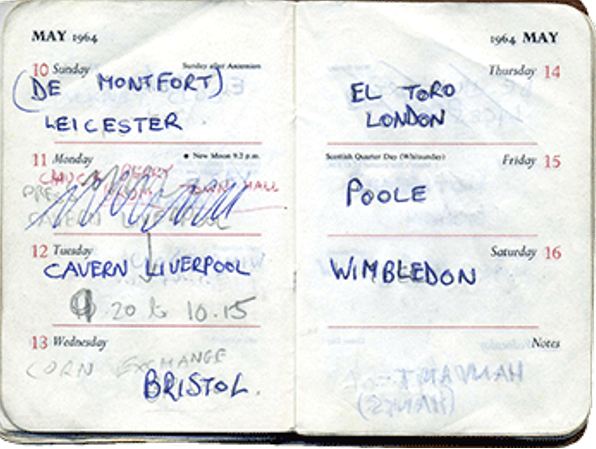 MAY 1964
10 Sunday Sunday after Ascension
(DE MONTFORT)
LEICESTER
11 Monday ● New Moon 9.2 p.m.
CHUCK BERRY
TOWN HALL
CAVERN LIVERPOOL
12 Tuesday
CAVERN LIVERPOOL
9.20 to 10.15
13 Wednesday
CORN EXCHANGE
BRISTOL.
1964 MAY
Thursday 14
EL TORO
LONDON
Scottish Quarter Day (Whitsunday) Friday 15
POOLE
Saturday 16
WIMBLEDON
Notes